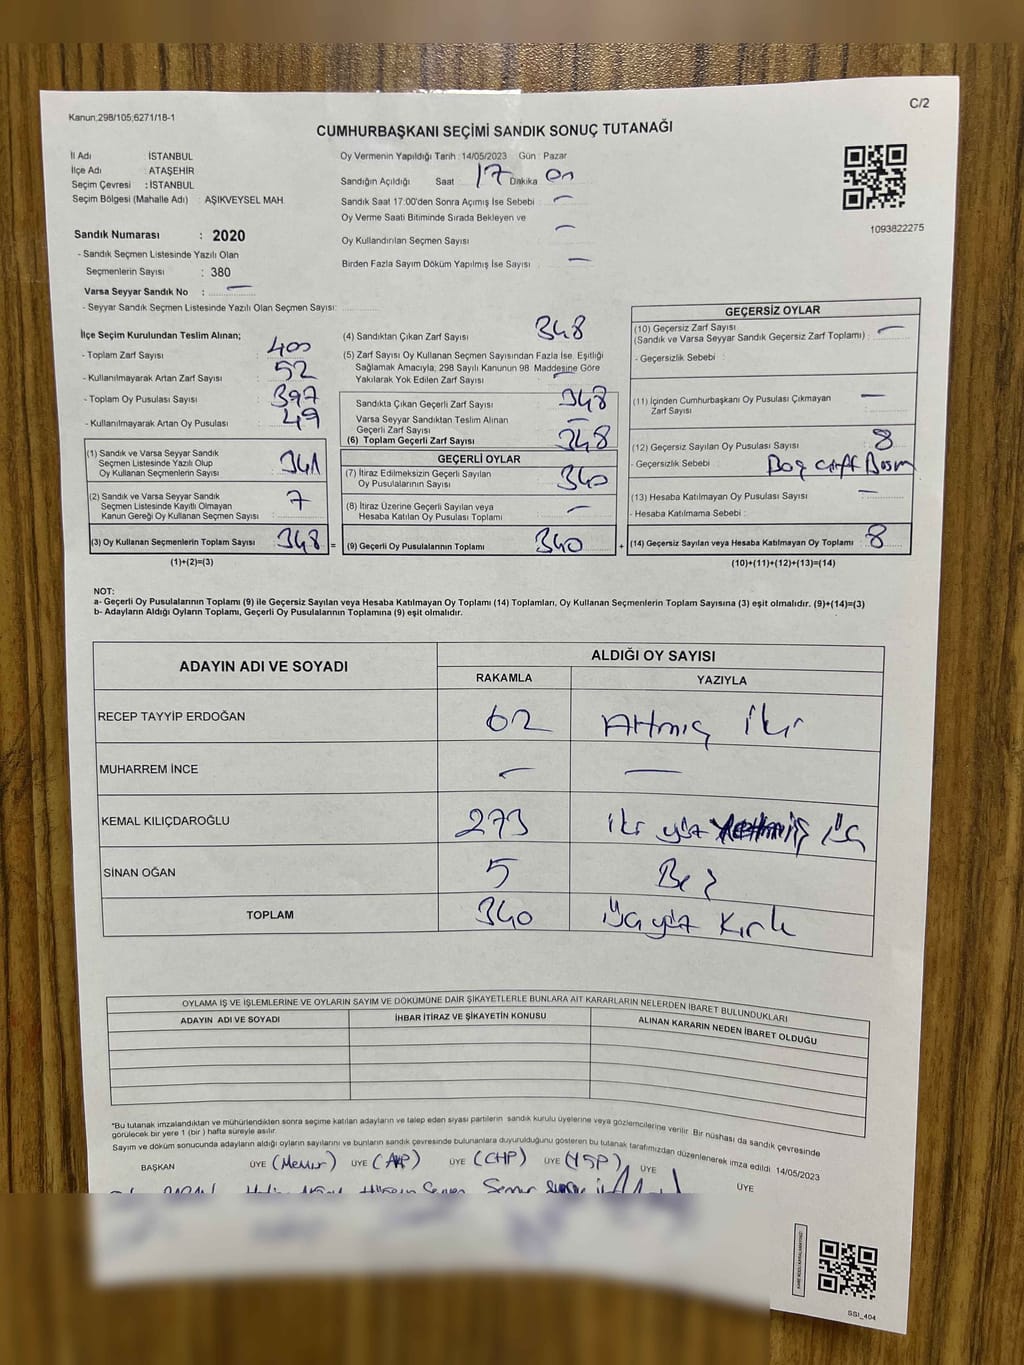 Kanun;298/105;6271/18-1
C/2
CUMHURBAŞKANI SEÇİMİ SANDIK SONUÇ TUTANAĞI
İl Adı İSTANBUL
İlçe Adı ATAŞEHİR
Seçim Çevresi : İSTANBUL
Seçim Bölgesi (Mahalle Adı) : AŞIKVEYSEL MAH.
Oy Vermenin Yapıldığı Tarih : 14/05/2023 Gün : Pazar
Sandığın Açıldığı Saat 17 Dakika 01
Sandık Saat 17:00'den Sonra Açımış İse Sebebi : —
Oy Verme Saati Bitiminde Sırada Bekleyen ve
Oy Kullandırılan Seçmen Sayısı —
Birden Fazla Sayım Döküm Yapılmış İse Sayısı : —
1093822275
Sandık Numarası : 2020
- Sandık Seçmen Listesinde Yazılı Olan
Seçmenlerin Sayısı : 380
Varsa Seyyar Sandık No : —
- Seyyar Sandık Seçmen Listesinde Yazılı Olan Seçmen Sayısı:
İlçe Seçim Kurulundan Teslim Alınan;
- Toplam Zarf Sayısı : 400
- Kullanılmayarak Artan Zarf Sayısı : 52
- Toplam Oy Pusulası Sayısı : 397
- Kullanılmayarak Artan Oy Pusulası : 49
(1) Sandık ve Varsa Seyyar Sandık
Seçmen Listesinde Yazılı Olup
Oy Kullanan Seçmenlerin Sayısı : 341
(2) Sandık ve Varsa Seyyar Sandık
Seçmen Listesinde Kayıtlı Olmayan
Kanun Gereği Oy Kullanan Seçmen Sayısı : 7
(3) Oy Kullanan Seçmenlerin Toplam Sayısı : 348 =
(1)+(2)=(3)
(4) Sandıktan Çıkan Zarf Sayısı 348
(5) Zarf Sayısı Oy Kullanan Seçmen Sayısından Fazla İse, Eşitliği
Sağlamak Amacıyla, 298 Sayılı Kanunun 98. Maddesine Göre
Yakılarak Yok Edilen Zarf Sayısı : —
Sandıkta Çıkan Geçerli Zarf Sayısı 348
Varsa Seyyar Sandıktan Teslim Alınan
Geçerli Zarf Sayısı : —
(6) Toplam Geçerli Zarf Sayısı 348
GEÇERLİ OYLAR
(7) İtiraz Edilmeksizin Geçerli Sayılan
Oy Pusulalarının Sayısı : 340
(8) İtiraz Üzerine Geçerli Sayılan veya
Hesaba Katılan Oy Pusulası Toplamı : —
(9) Geçerli Oy Pusulalarının Toplamı : 340 +
GEÇERSİZ OYLAR
(10) Geçersiz Zarf Sayısı —
(Sandık ve Varsa Seyyar Sandık Geçersiz Zarf Toplamı) :
- Geçersizlik Sebebi :
(11) İçinden Cumhurbaşkanı Oy Pusulası Çıkmayan
Zarf Sayısı : —
(12) Geçersiz Sayılan Oy Pusulası Sayısı : 8
- Geçersizlik Sebebi : Boş çift Basım
(13) Hesaba Katılmayan Oy Pusulası Sayısı : —
- Hesaba Katılmama Sebebi :
(14) Geçersiz Sayılan veya Hesaba Katılmayan Oy Toplamı : 8
(10)+(11)+(12)+(13)=(14)
NOT:
a- Geçerli Oy Pusulalarının Toplamı (9) ile Geçersiz Sayılan veya Hesaba Katılmayan Oy Toplamı (14) Toplamları, Oy Kullanan Seçmenlerin Toplam Sayısına (3) eşit olmalıdır. (9)+(14)=(3)
b- Adayların Aldığı Oyların Toplamı, Geçerli Oy Pusulalarının Toplamına (9) eşit olmalıdır.
ADAYIN ADI VE SOYADI ALDIĞI OY SAYISI
RAKAMLA YAZIYLA
RECEP TAYYİP ERDOĞAN 62 Altmış İki
MUHARREM İNCE — —
KEMAL KILIÇDAROĞLU 273 iki yüz Üç
SİNAN OĞAN 5 Beş
TOPLAM 340 Üç yüz Kırk
OYLAMA İŞ VE İŞLEMLERİNE VE OYLARIN SAYIM VE DÖKÜMÜNE DAİR ŞİKAYETLERLE BUNLARA AİT KARARLARIN NELERDEN İBARET BULUNDUKLARI
ADAYIN ADI VE SOYADI İHBAR İTİRAZ VE ŞİKAYETİN KONUSU ALINAN KARARIN NEDEN İBARET OLDUĞU
*Bu tutanak imzalandıktan ve mühürlendikten sonra seçime katılan adayların ve talep eden siyasi partilerin sandık kurulu üyelerine veya gözlemcilerine verilir. Bir nüshası da sandık çevresinde
görülecek bir yere 1 (bir) hafta süreyle asılır.
Sayım ve döküm sonucunda adayların aldığı oyların sayılarını ve bunların sandık çevresinde bulunanlara duyurulduğunu gösteren bu tutanak tarafımızdan düzenlenerek imza edildi. 14/05/2023
BAŞKAN ÜYE (Memur) ÜYE (AKP) ÜYE (CHP) ÜYE (YSP) ÜYE ÜYE
SSI_404